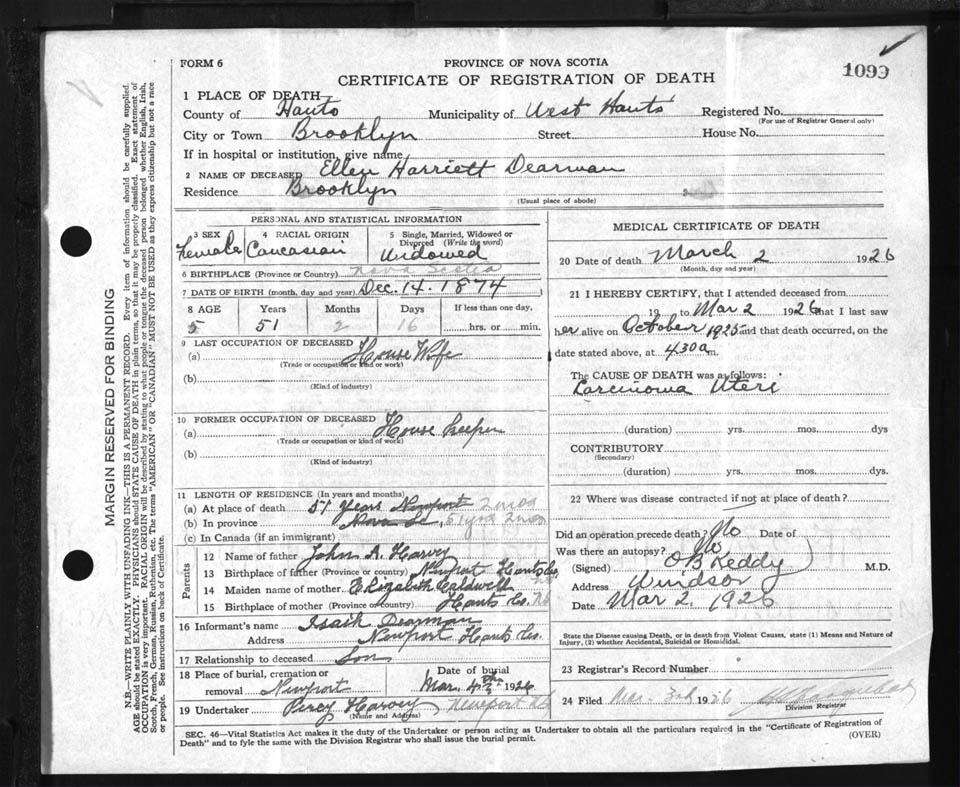 FORM 6
PROVINCE OF NOVA SCOTIA
CERTIFICATE OF REGISTRATION OF DEATH
1099
1 PLACE OF DEATH
County of Hants Municipality of West Hants Registered No.
(For use of Registrar General only)
City or Town Brooklyn Street House No.
If in hospital or institution, give name
2 NAME OF DECEASED Ellen Harriett Dearman
Residence Brooklyn
(Usual place of abode)
PERSONAL AND STATISTICAL INFORMATION
3 SEX
Female
4 RACIAL ORIGIN
Caucasian
5 Single, Married, Widowed or
Divorced (Write the word)
Widowed
6 BIRTHPLACE (Province or Country) Nova Scotia
7 DATE OF BIRTH (month, day and year) Dec. 14. 1874
8 AGE Years Months Days If less than one day,
5 51 2 16 hrs. or min.
9 LAST OCCUPATION OF DECEASED
(a) House Wife
(Trade or occupation or kind of work)
(b)
(Kind of industry)
10 FORMER OCCUPATION OF DECEASED
(a) House Keeper
(Trade or occupation or kind of work)
(b)
(Kind of industry)
11 LENGTH OF RESIDENCE (In years and months)
(a) At place of death 51 years Newport 2 mos
(b) In province Nova Sc. 51 yrs 2 mos
(c) In Canada (if an immigrant)
Parents
12 Name of father John A. Harvey
13 Birthplace of father (Province or country) Newport Hants Co.
14 Maiden name of mother Elizabeth Caldwell
15 Birthplace of mother (Province or country) Hants Co. NS
16 Informant's name Isaih Dearman
Address Newport Hants Co.
17 Relationship to deceased Son
18 Place of burial, cremation or
removal Newport
Date of burial
Mar. 4th 1926
19 Undertaker Percy Harvey Newport
(Name and Address)
MEDICAL CERTIFICATE OF DEATH
20 Date of death March 2 1926
(Month, day and year)
21 I HEREBY CERTIFY, that I attended deceased from
19 to Mar 2 1926 that I last saw
her alive on October 1925 and that death occurred, on the
date stated above, at 4 30 a m.
The CAUSE OF DEATH was as follows:
Carcinoma Uteri
(duration) yrs. mos. dys
CONTRIBUTORY
(Secondary)
(duration) yrs. mos. dys.
22 Where was disease contracted if not at place of death?
Did an operation precede death? No Date of
Was there an autopsy? No
(Signed) O B Keddy M.D.
Address Windsor
Date Mar 2. 1926
State the Disease causing Death, or in death from Violent Causes, state (1) Means and Nature of
Injury, (2) whether Accidental, Suicidal or Homicidal.
23 Registrar's Record Number
24 Filed Mar. 3rd 1926
Division Registrar
SEC. 46—Vital Statistics Act makes it the duty of the Undertaker or person acting as Undertaker to obtain all the particulars required in the "Certificate of Registration of
Death" and to fyle the same with the Division Registrar who shall issue the burial permit.
(OVER)
MARGIN RESERVED FOR BINDING
N.B.—WRITE PLAINLY WITH UNFADING INK—THIS IS A PERMANENT RECORD. Every item of information should be carefully supplied.
AGE should be stated EXACTLY. PHYSICIANS should STATE CAUSE OF DEATH in plain terms, so that it may be properly classified. Exact statement of
OCCUPATION is very important. RACIAL ORIGIN will be described by stating to what people or tongue the deceased person belonged whether English, Irish,
Scotch, French, German, Russian, Ruthenian, etc. The terms "AMERICAN" OR "CANADIAN" MUST NOT BE USED as they express citizenship but not a race
or people. See instructions on back of Certificate.